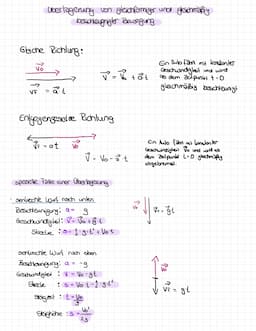 Überlagerung von gleichförmiger und gleichmäßig
beschleunigter Bewegung
Gleiche Richtung:
Ein Auto fährt mit konstanter
Geschwindigkeit und wird
ab dem Zeitpunkt t=0
gleichmäßig beschleunigt
v₀
v = v₀ + a·t
vr = a·t
Entgegengesetzte Richtung
Ein Auto fährt mit konstanter
Geschwindigkeit v₀ und wird ab
dem Zeitpunkt t=0 gleichmäßig
abgebremst.
vr = at v₀
v = v₀ - a·t
spezielle Fälle einer Überlagerung
senkrechter Wurf nach unten
Beschleunigung: a = -g
Geschwindigkeit: v = v₀ + g·t
Strecke
senkrechter Wurf nach oben
Beschleunigung: a = -g
Geschwindigkeit: v = v₀ - g·t
Strecke : s = v₀·t - ½ g·t²
Steigzeit : t = v₀/g
Steighöhe : s = v₀²/2g
v₀
vr = gt